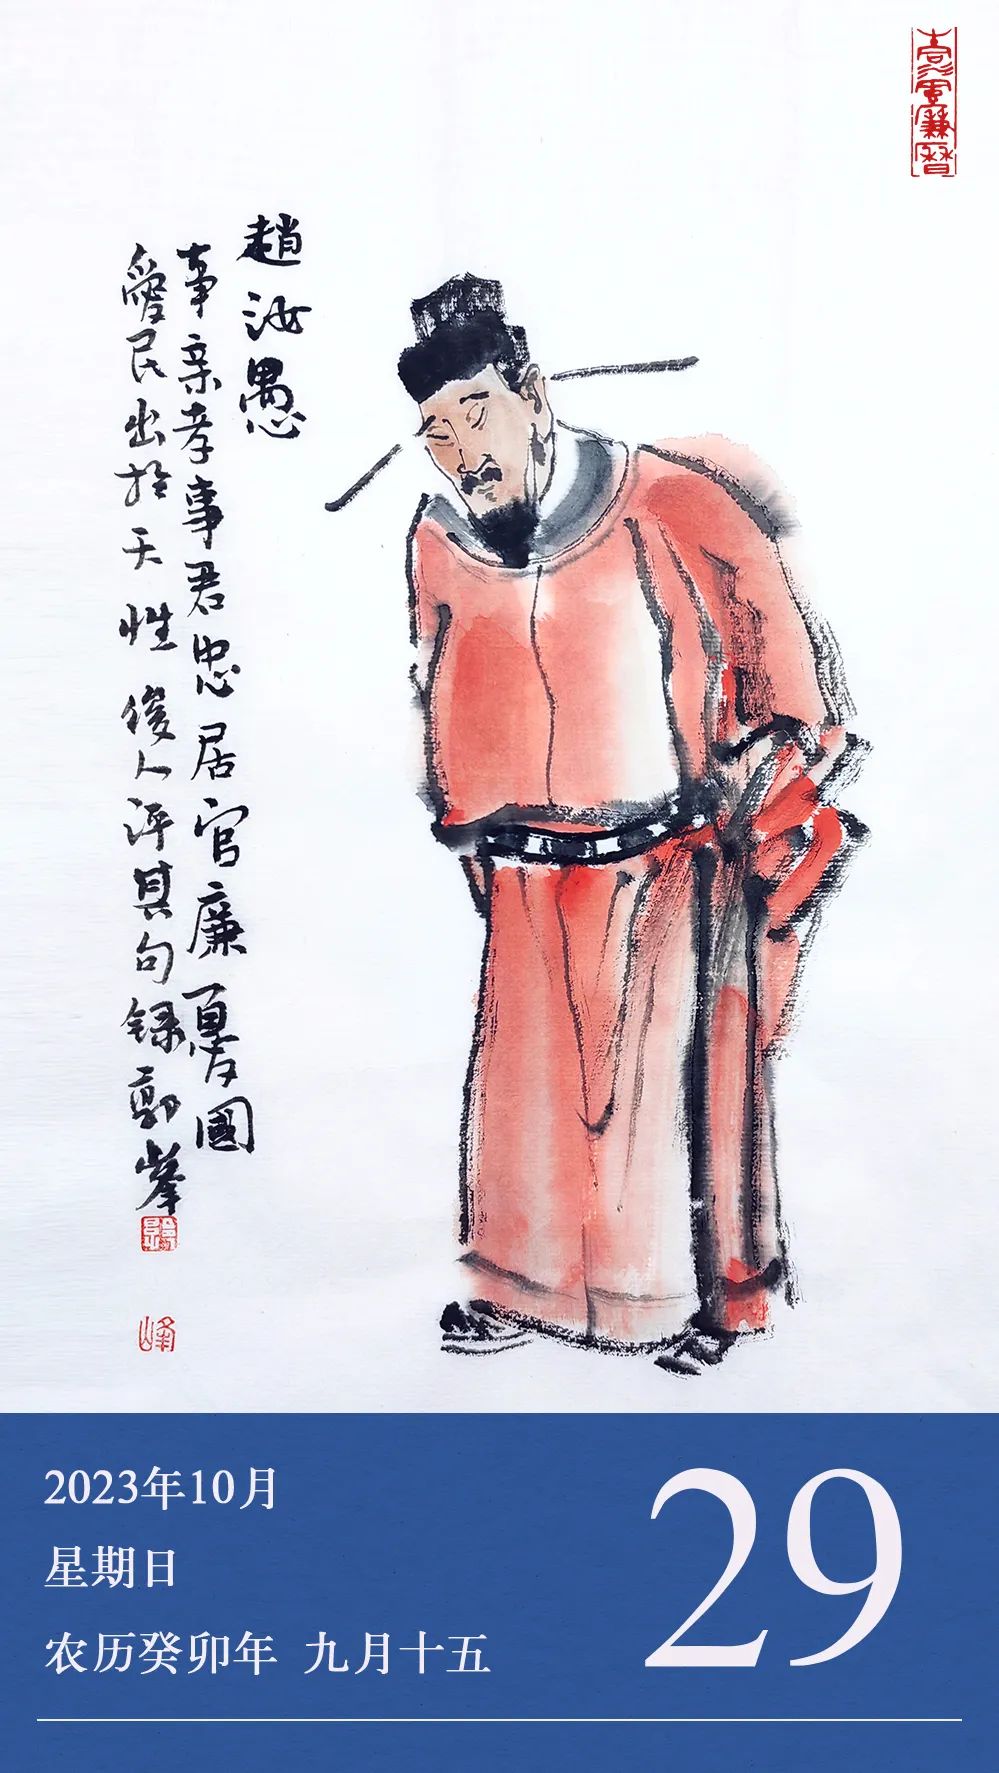 趙汝愚
事亲孝事君忠居官廉憂國
愛民出於天性後人评其句録郭峯
峰
2023年10月
星期日
农历癸卯年 九月十五
29